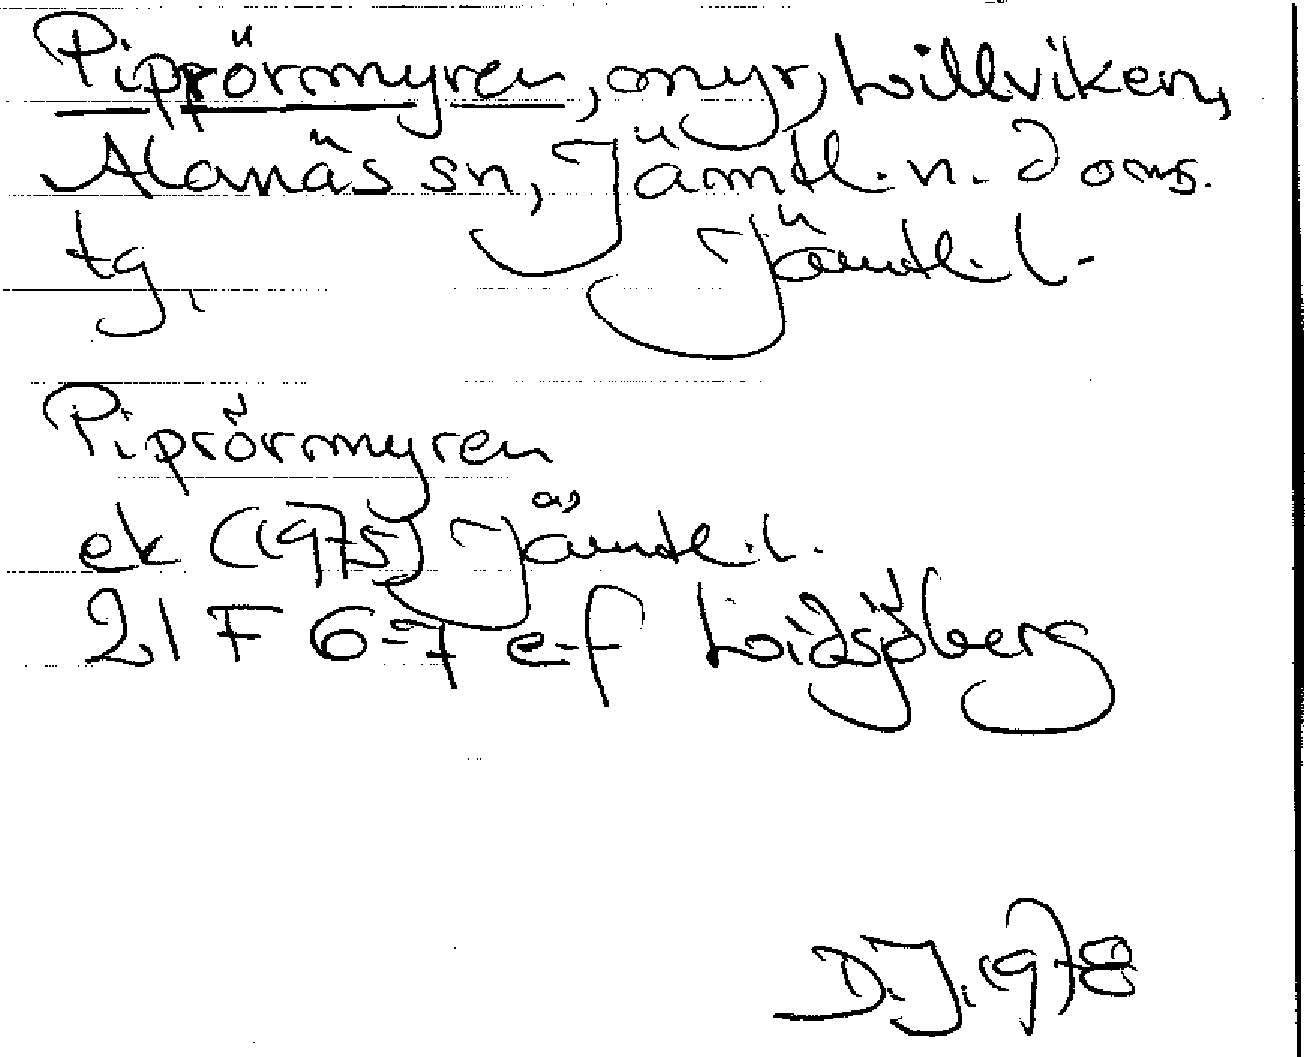 Piprörmyren, myr, Lillviken,
Alanäs sn, Jämtl. n. doms.
tg, Jämtl. l.
Piprörmyren
ek (1975) Jämtl. l.
21 F 6-7 e-f Lidsjöberg
D.J. 1978